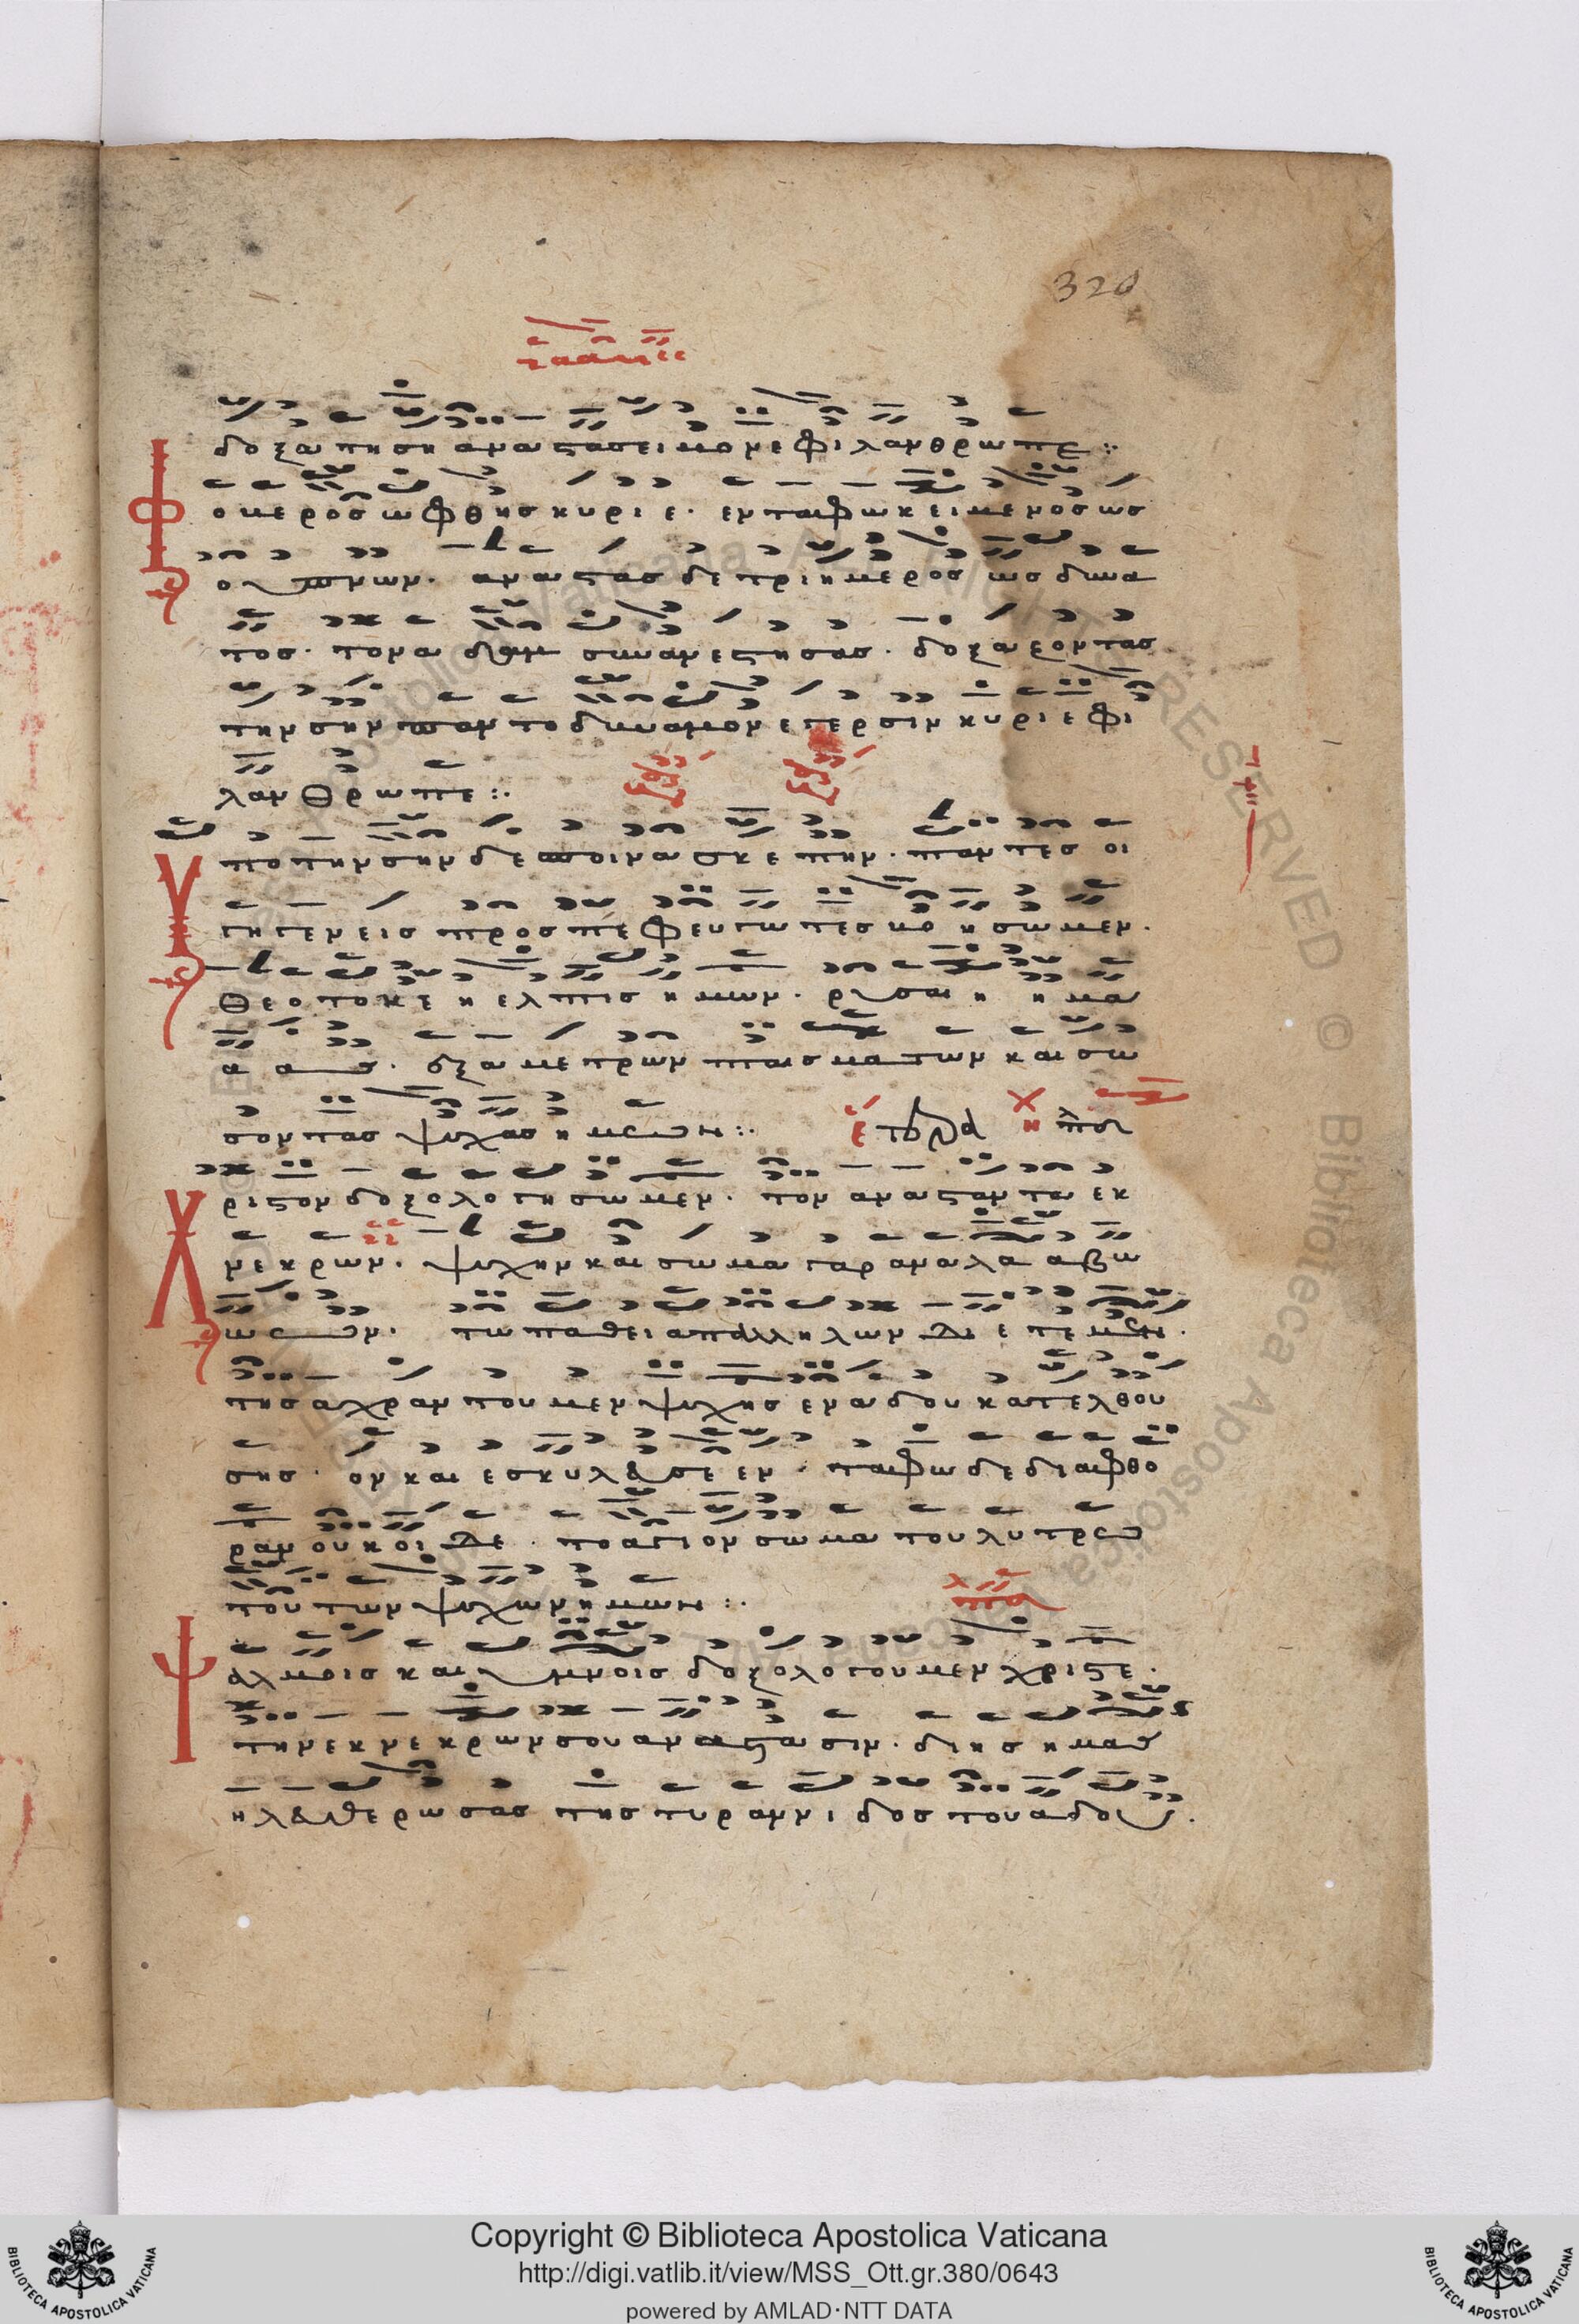 320
δοξα τη ση αναστασει μονε φιλανθρωπε :·
Φοβερος ωφθης κυριε · εν ταφω κειμενος ως
ο υπνων · αναστας δε τριημερος ως δυνα
τος · τον αδαμ συναναστησας · δοξαζοντας
την σην παντοδυναμον εγερσιν κυριε φι
λανθρωπε :·
Υπο την σην δεσποινα σκεπην · παντες οι
γηγενεις προσπεφευγωτες βοησωμεν ·
θεοτοκε η ελπις ημων · ρυσαι η ημα
α ας · εξ αμετρων πταισματων και σω
σον τας ψυχας ημων :·
Χριστον δοξολογησωμεν · τον ανασταντα εκ
νεκρων · ψυχην και σωμα γαρ αναλα αβω
ω ων · τω παθει απ αλληλων διετεμεν ·
της αχραντου μεν ψυχης εν αδου κατελθου
σης · ον και εσκυλευσε εν · ταφω δε διαφθο
ραν ουκ οιδε · το αγιον σωμα του λυτρω
του των ψυχων ημων :·
Ψαλμοις και υμνοις δοξολογουμεν χριστε ·
την εκ νεκρων σου αναστασιν · δι ης ημας
ηλευθερωσας της τυραννιδος του αδου ·
Copyright © Biblioteca Apostolica Vaticana
http://digi.vatlib.it/view/MSS_Ott.gr.380/0643
powered by AMLAD·NTT DATA
BIBLIOTECA APOSTOLICA VATICANA
BIBLIOTECA APOSTOLICA VATICANA